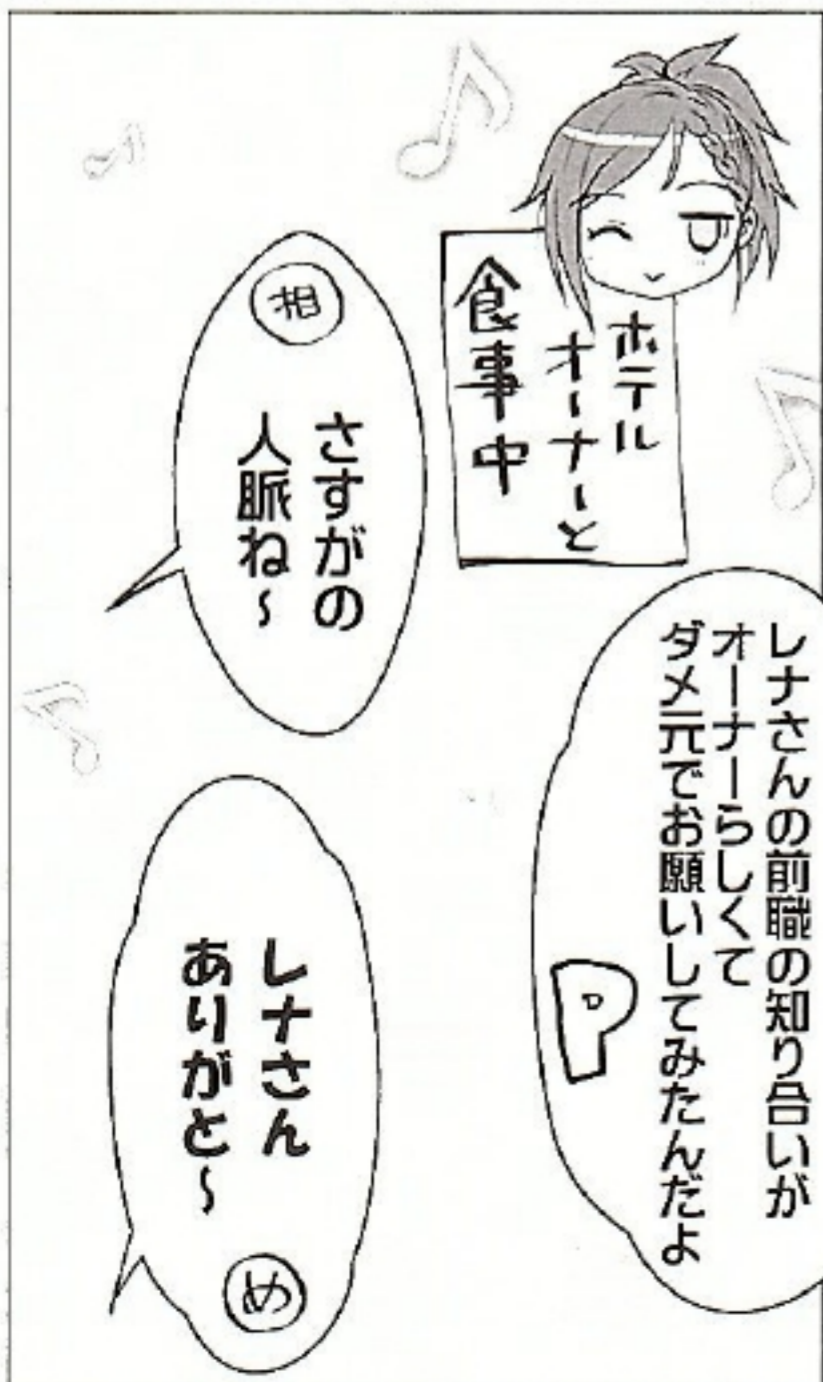 ホテル
オーナーと
食事中
レナさんの前職の知り合いが
オーナーらしくて
ダメ元でお願いしてみたんだよ
P
相
さすがの
人脈ね～
レナさん
ありがと～
め